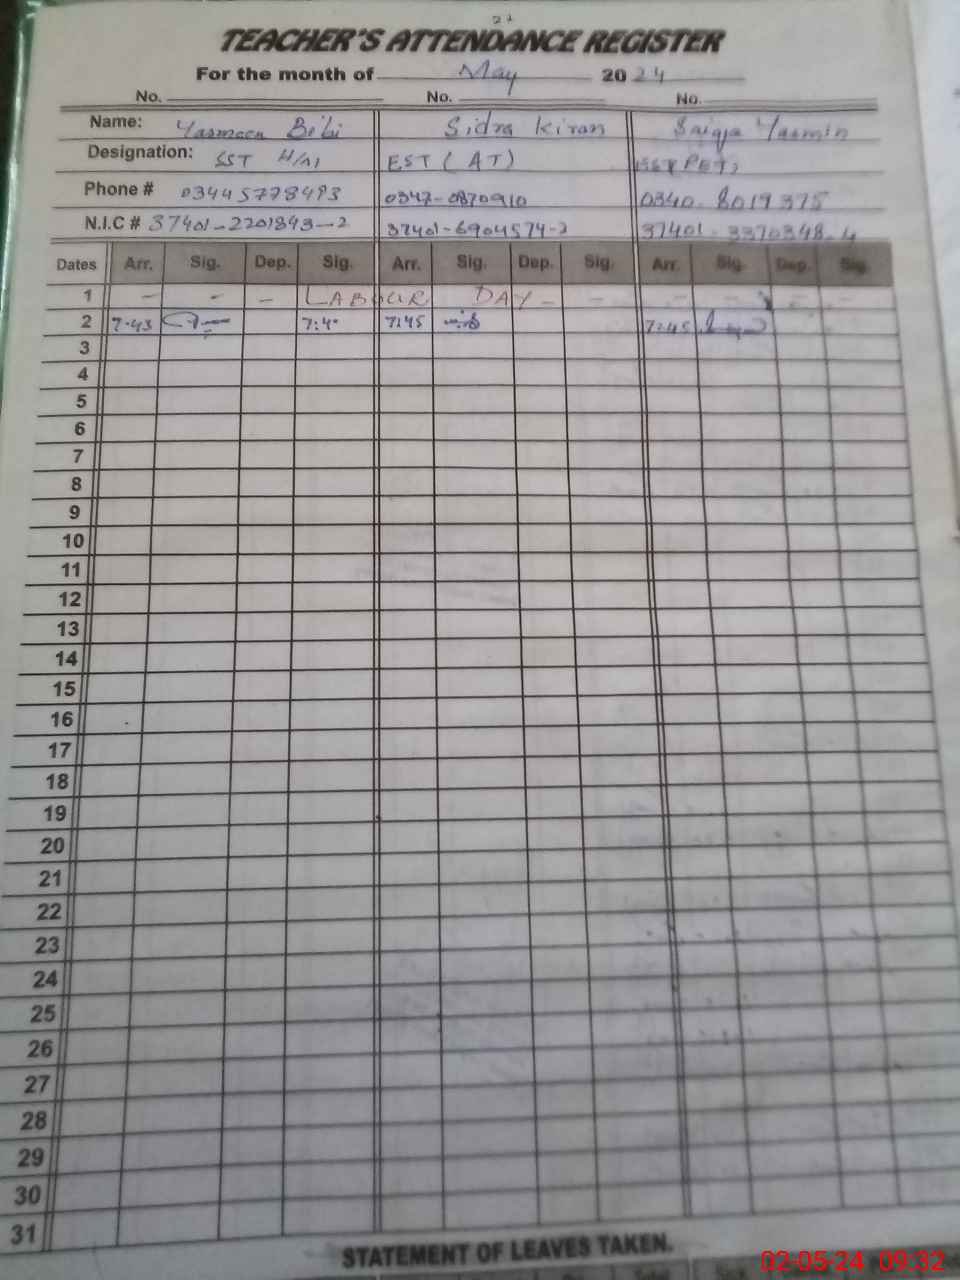 27
TEACHER'S ATTENDANCE REGISTER
For the month of May 2024
No. No. No.
Name: Yasmeen Bibi Sidra Kiran Saiqa Yasmin
Designation: SST H/M EST (AT) EST PET
Phone # 03445778493 0347-0870910 0340-8019375
N.I.C # 37401-2201843-2 37401-6904574-2 37401-3370348-4
Dates Arr. Sig. Dep. Sig. Arr. Sig. Dep. Sig. Arr. Sig. Dep. Sig.
1 - - - LABOUR DAY - - - - - - -
2 7:43 7:40 7:45 7:45
3
4
5
6
7
8
9
10
11
12
13
14
15
16
17
18
19
20
21
22
23
24
25
26
27
28
29
30
31
STATEMENT OF LEAVES TAKEN.
02-05-24 09:32